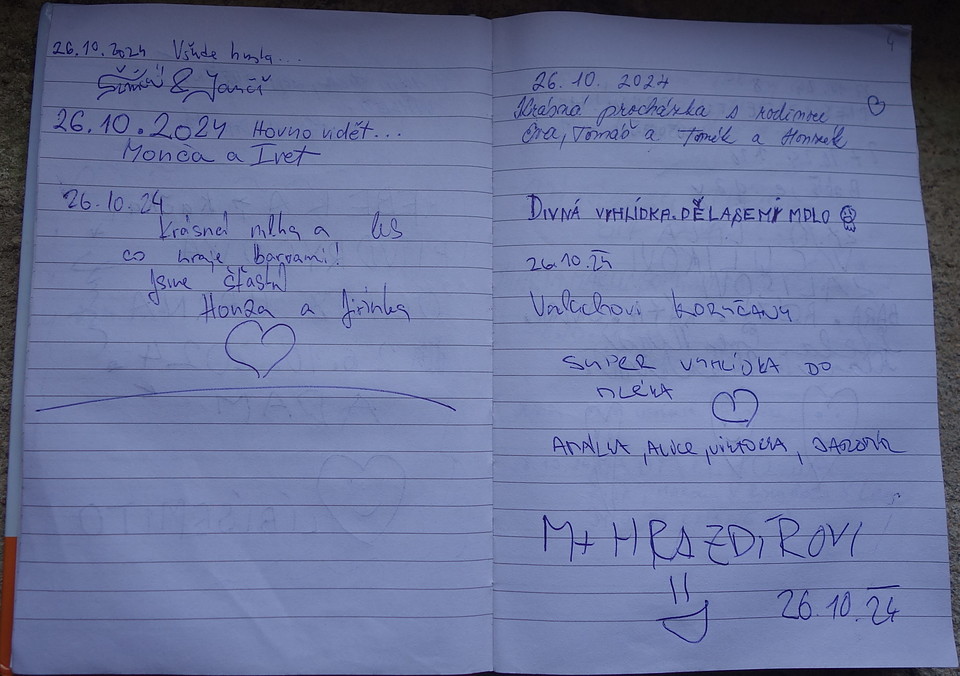 26.10.2024 Všude hmla...
& Jančí
26.10.2024 Hovno vidět...
Monča a Ivet
26.10.24
krásná mlha a les
co hraje barvami!
jsme šťastní
Honza a Jiřinka
4
26. 10. 2024
Krásná procházka s rodinou
Eva, Tomáš a Tomík a Honzík
DIVNÁ VYHLÍDKA. DĚLASEMÍ MDLO
26.10.24
Valchovi KORYČANY
SUPER VYHLÍDKA DO
MLÉKA
AMÁLKA, ALICE, VIKTORKA,
M+HRAZDÍROVI
26.10.24